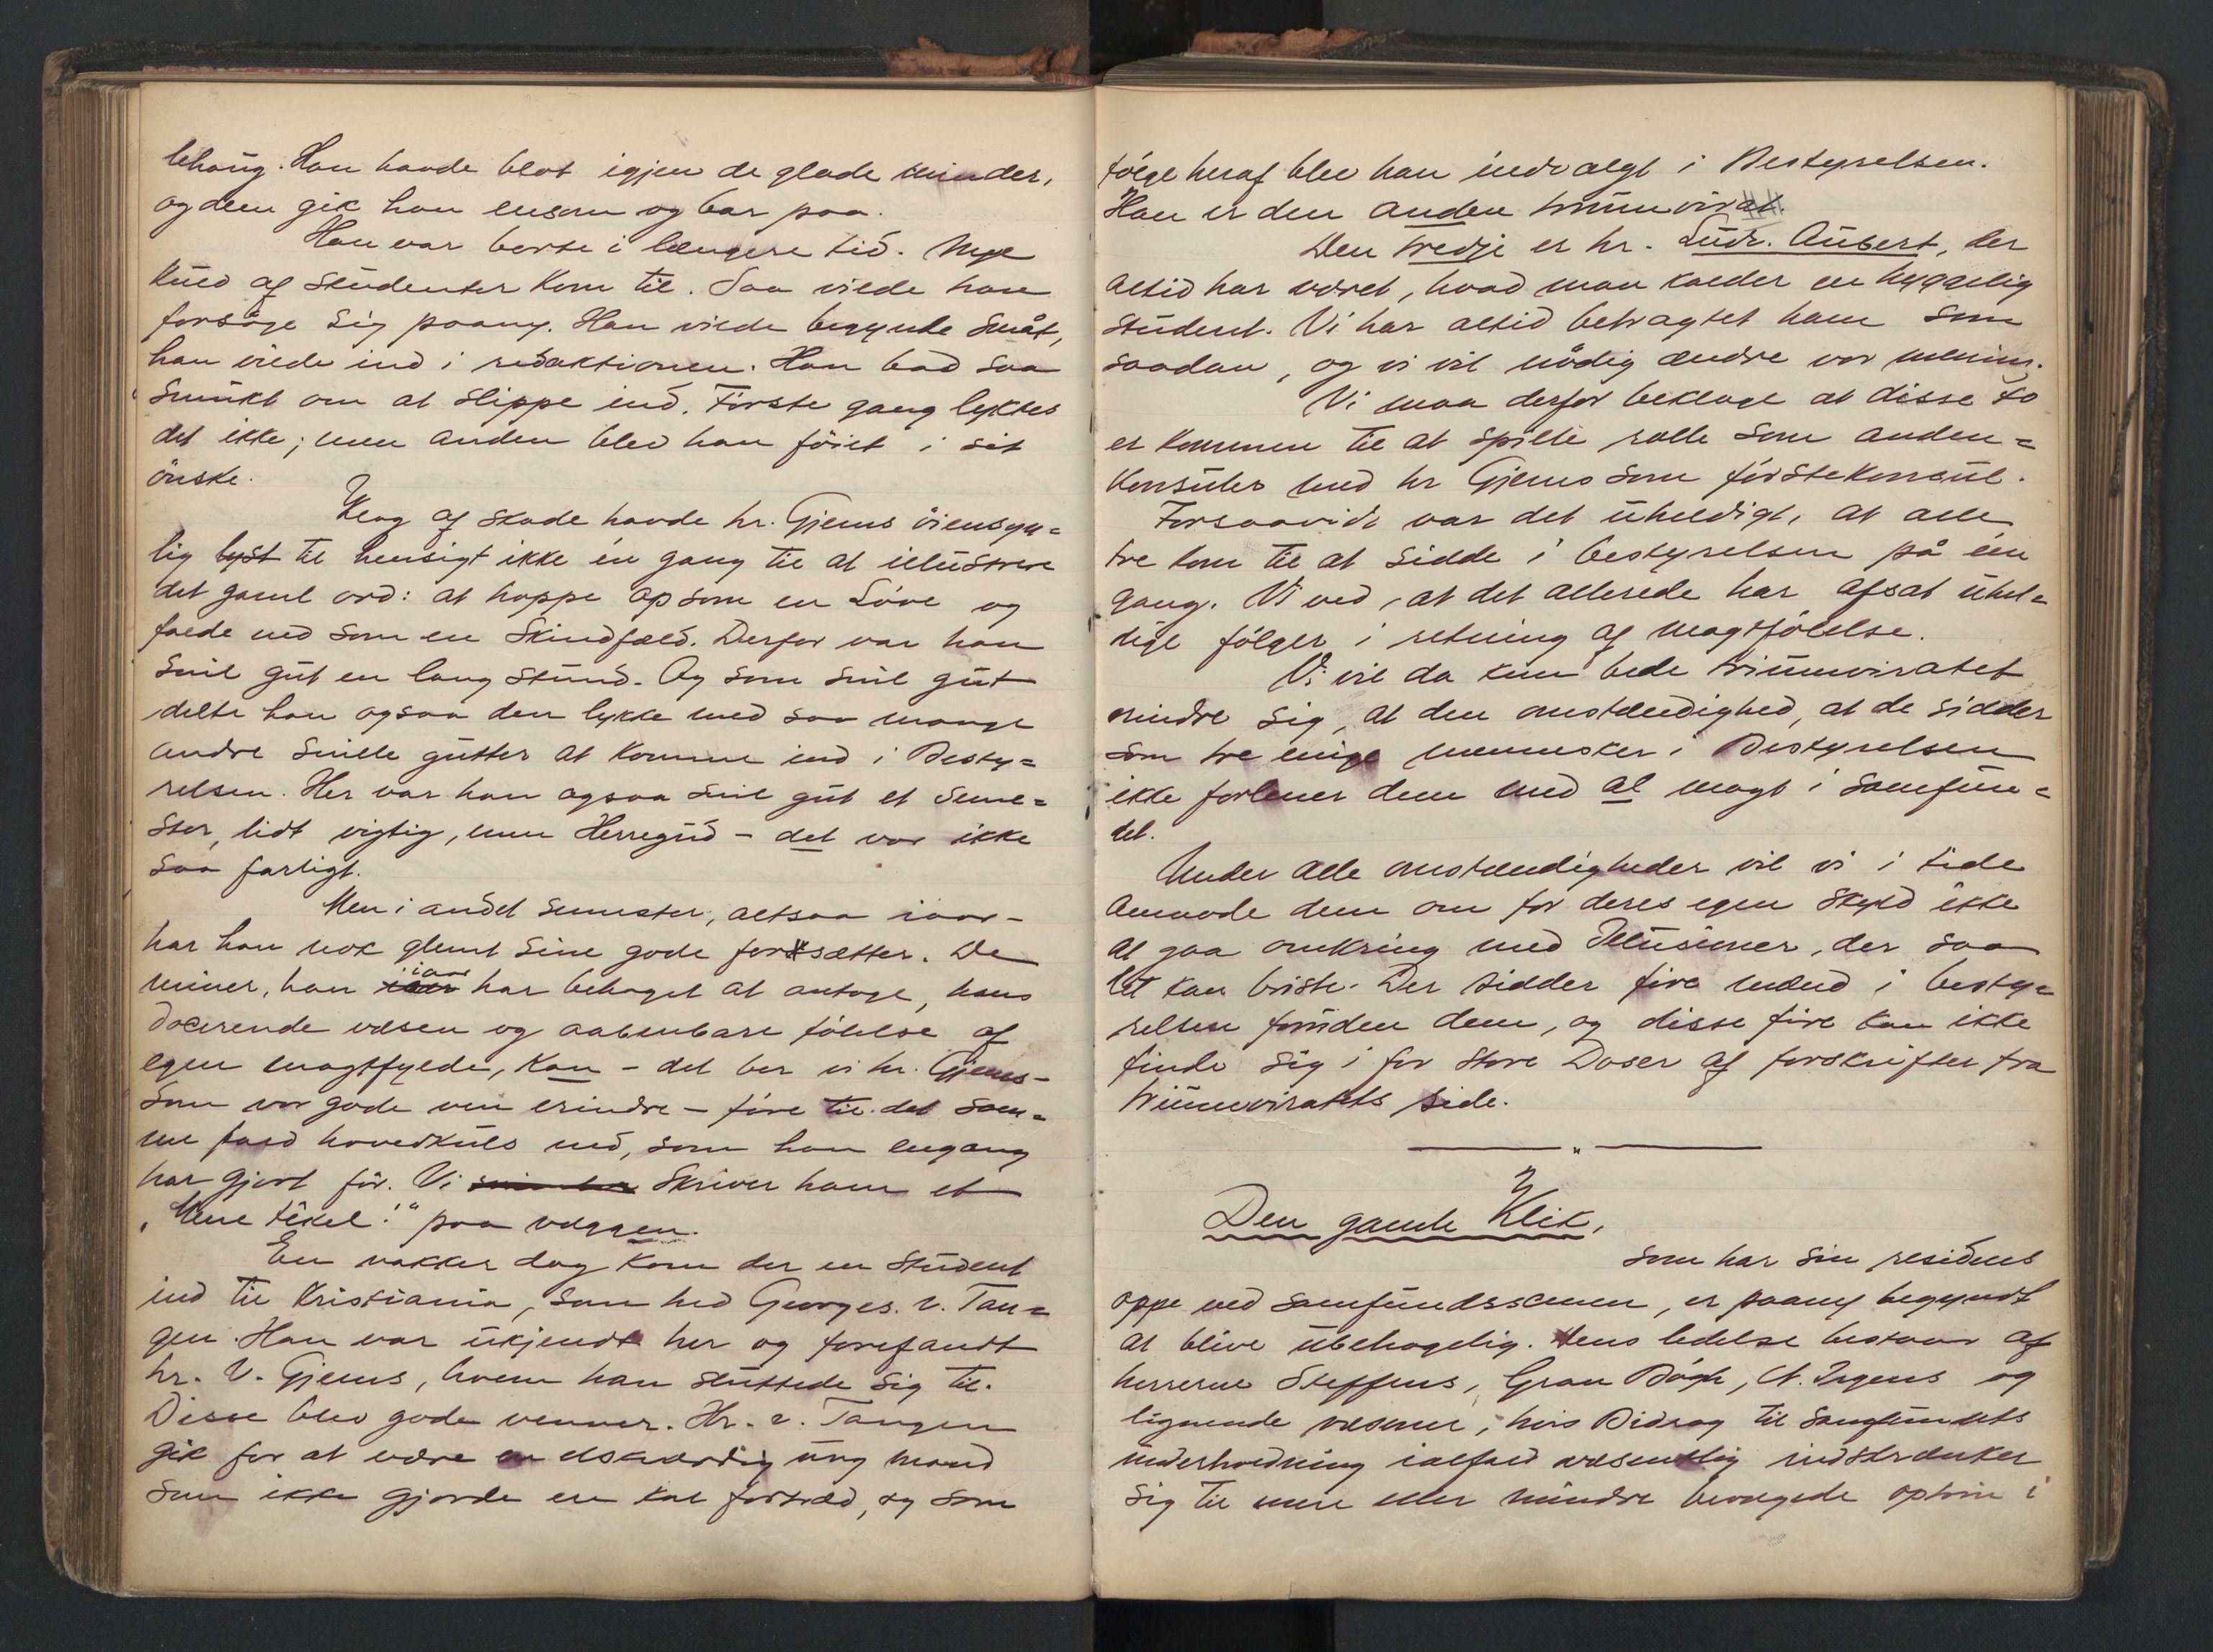 behang. Han havde blot igjen de glade minder,
og dem gik han ensom og bar paa.
Han var borte i længere tid. Nye
kuld af studenter kom til. Saa vilde han
forsöge sig paany. Han vilde begynde småt,
han vilde ind i redaktionen. Han bad saa
smukt om at slippe ind. Förste gang lyktes
det ikke; men anden blev han föiet i sit
önske.
Klog af skade havde hr. Gjems öiensyn=
lig lyst til hensigt ikke én gang til at illustrere
det gaml ord: at hoppe op som en Löve og
falde ned som en Skindfæld. Derfor var han
snil gut en lang stund. Og som snil gut
delte han ogsaa den lykke med saa mange
andre snille gutter at komme ind i Besty=
relsen. Her var han ogsaa snil gut et seme=
ster, lidt vigtig, men Herregud – det var ikke
saa farligt.
Men i andet semester, altsaa iaar –
har han nok glemt sine gode forsætter. De
miner, han iaar har behaget at antage, hans
docerende væsen og aabenbare fölelse af
egen magtfylde, kan – det ber vi hr. Gjems –
som vor gode ven erindre – före til det sam=
me fald hovedkuls ned, som han engang
har gjort för. Vi skriver ham et
„Mene tekel!“ paa væggen.
En vakker dag kom der en student
ind til Kristiania, som hed Georges. v. Tan=
gen. Han var ukjendt her og forefandt
hr. V. Gjems, hvem han sluttede sig til.
Disse blev gode venner. Hr. v. Tangen
gik for at være en elskværdig ung mand
som ikke gjorde en kat fortræd, og som
fölge heraf blev han indvalgt i Bestyrelsen.
Han er den anden triumvir
Den tredje er hr. Ludv. Aubert, der
altid har været, hvad man kalder en hyggelig
student. Vi har altid betragtet ham som
saadan, og vi vil nödig ændre vor mening.
Vi maa derfor beklage at disse to
er kommen til at spille rolle som anden=
konsuler med hr Gjems som förstekonsul.
Forsaavidt var det uheldigt, at alle
tre kom til at sidde i bestyrelsen på én
gang. Vi ved, at det allerede har afsat uhel=
dige fölger i retning af magtfölelse.
Vi vil da kun bede triumviratet
erindre sig, at den omstændighed, at de sidder
som tre enige mennesker i Bestyrelsen
ikke forlener dem med al magt i samfun=
det.
Under alle omstændigheder vil vi i tide
anmode dem om for deres egen skyld ikke
at gaa omkring med Illusioner, der saa
let kan briste. Der sidder fire mænd i besty=
relsen foruden dem, og disse fire kan ikke
finde sig i for store Doser af forskrifter fra
triumviratets side.
Den gamle Klik,
som har sin residens
oppe ved samfundsscenen, er paany begyndt
at blive ubehagelig. Dens ledelse bestaar af
herrerne Steffens, Gran Bögh, N. Irgens og
lignende væsener, hvis Bidrag til samfundets
underholdning ialfald væsentlig indskrænker
sig til mere eller mindre bevægede optrin i